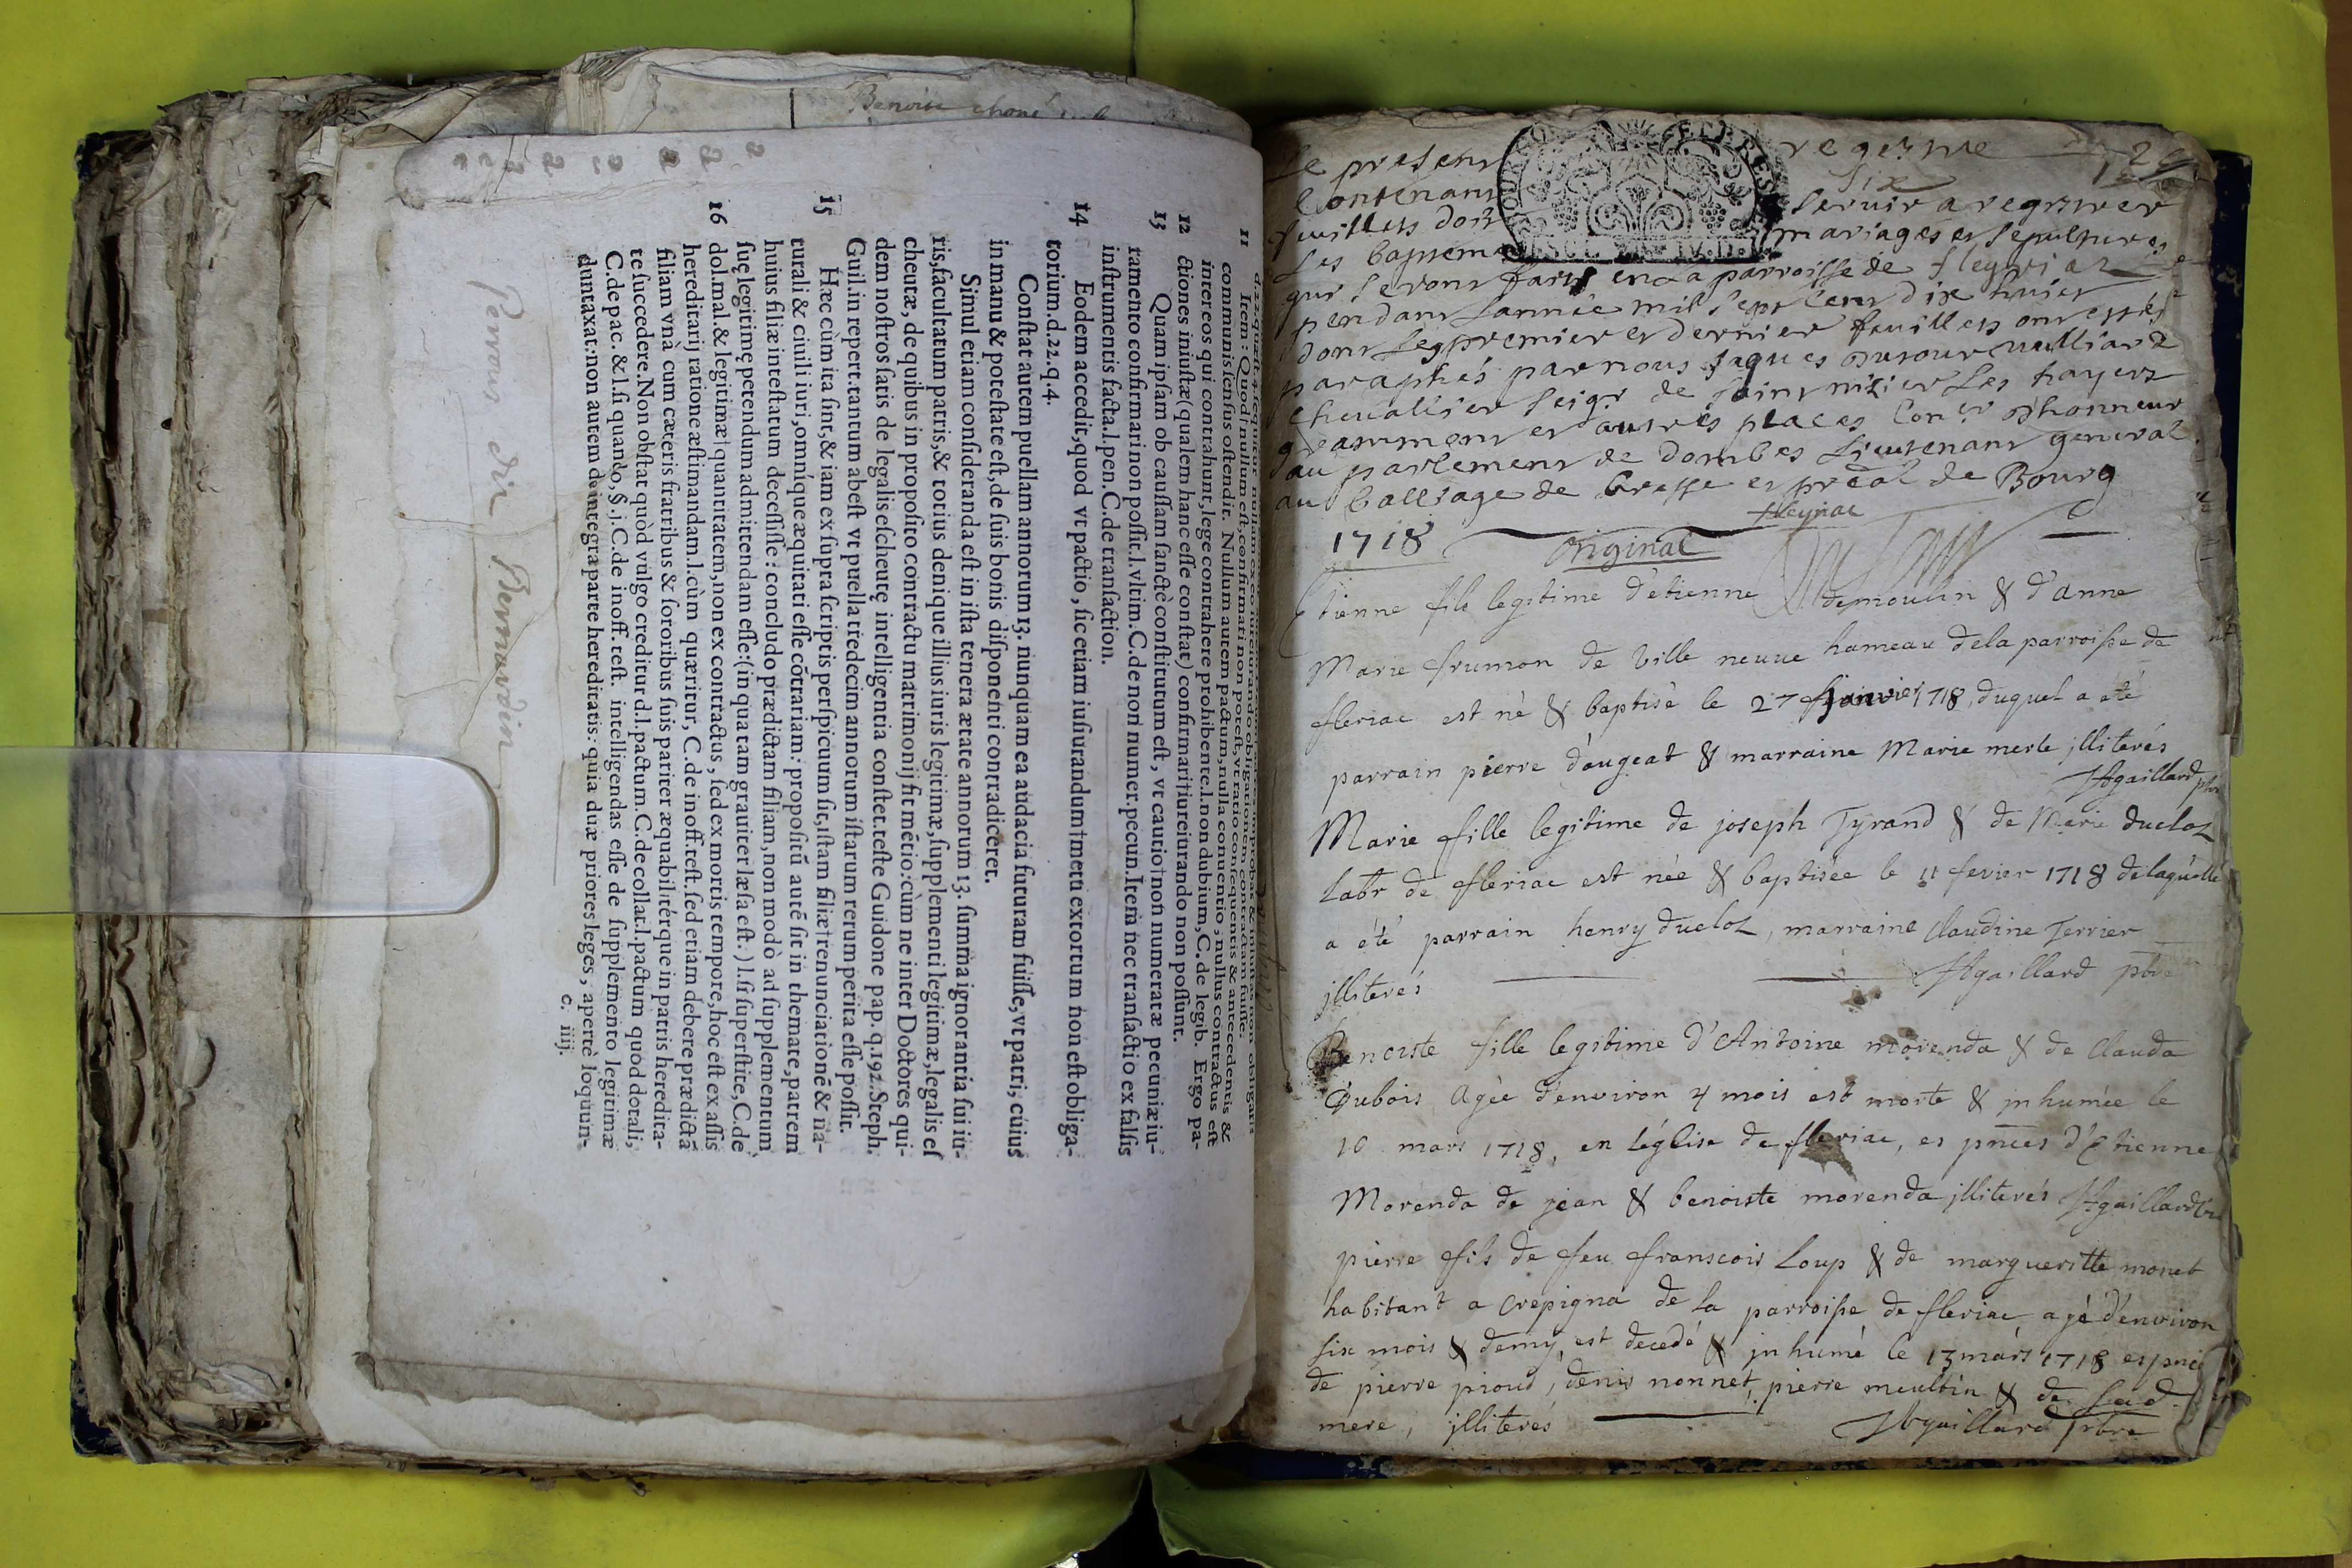 Benoiste
11 Item: Quod nullum est, confirmari non potest, vt ratio consequentis & antecedentis &
communis sensus ostendit. Nullum autem pactum, nulla conuentio, nullus contractus est
inter eos qui contrahunt, lege contrahere prohibente.l.non dubium, C. de legib. Ergo pa-
12 ctiones iniustæ (qualem hanc esse constat) confirmari iureiurando non possunt.
13 Quam ipsam ob caussam sanctè constitutum est, vt cautio†non numeratæ pecuniæ iu-
ramento confirmari non possit.l.vltim.C.de non numer.pecun.Item nec transactio ex falsis
instrumentis facta.l.pen.C.de transaction.
14 Eodem accedit, quod vt pactio, sic etiam iusiurandum†metu extortum non est obliga-
torium.d.22.q.4.
Constat autem puellam annorum 13. nunquam ea audacia futuram fuisse, vt patri, cuius
in manu & potestate est, de suis bonis disponenti contradiceret.
Simul etiam consideranda est in ista tenera ætate annorum 13. summa ignorantia sui iu-
ris, facultatum patris, & totius denique illius iuris legitimæ, supplementi legitimæ, legalis es
cheutæ, de quibus in proposito contractu matrimonij fit mētio: cùm ne inter Doctores qui-
dem nostros satis de legalis escheutę intelligentia constet. teste Guidone pap. q.192. Steph.
Guil. in repert. tantum abest vt puella tredecim annorum istarum rerum perita esse possit.
15 Hæc cùm ita sint, & iam ex supra scriptis perspicuum sit, istam filiæ†renunciationē & na-
turali & ciuili iuri, omnique æquitati esse cōtrariam: propositū autē sit in themate, patrem
huius filiæ intestatum decessisse: concludo prædictam filiam, non modò ad supplementum
suę legitimę petendum admittendam esse: (in qua tam grauiter læsa est.) l. si superstite, C.de
16 dol.mal.& legitimæ†quantitatem, non ex contractus, sed ex mortis tempore, hoc est ex assis
hereditarij ratione æstimandam.l.cùm quæritur, C.de inoff.test. sed etiam debere prædictā
filiam vnà cum cæteris fratribus & sororibus suis pariter æquabilitérque in patris heredita-
te succedere. Non obstat quòd vulgo creditur d.l.pactum.C.de collat.l.pactum quod dotali,
C.de pac. & l.si quando, §.j.C.de inoff. test. intelligendas esse de supplemento legitimæ
duntaxat: non autem de integra parte hereditatis: quia duæ priores leges, apertè loquun-
c. iij.
Perrous dit Bernardin
Le present regitre
Contenant six
feuillets doit servir a regitrer
Les baptemes mariages et sepultures
qui seront faits en la parroisse de fleyriat
pendant Lannée mil sept cent dix huict
dont les premier et dernier feuillets ont estés
paraphés par nous Jaques Dutour vulliard
chevallier seigr de saint nizier Les hayers
et autres places Coner d'honneur
au parlement de dombes Lieutenant general
au balliage de bresse et preal de Bourg
fleyriac
1718 Original
Etienne fils legitime d'etienne demoulin & d'anne
Marie frumon de Ville neuve hameau dela parroisse de
fleriac est né & baptisé le 27 Janvier 1718, duquel a eté
parrain pierre daugeat & marraine Marie merle jlliterés
Hgaillard pbre
Marie fille legitime de joseph Tyrand & de Marie ducloz
Labr de fleriac est née & baptisée le 11 fevier 1718 de laquelle
a été parrain henry ducloz, marraine Claudine Terrier
jlliterés Hgaillard pbre
Benoiste fille legitime d'Antoine morenda & de Clauda
Dubois agée d'environ 4 mois est morte & jnhumée le
10 mars 1718, en léglise de fleriac, es pnces d'Etienne
Morenda de jean & benoiste morenda jlliterés Hgaillard
pierre fils de feu franscois Loup & de margueritte monet
habitant a Crepigna de la parroisse de fleriac agé d'environ
six mois & demy, est decedé & jnhumé le 13 mars 1718 es pnces
de pierre pioud, denis nonnet, pierre meultin & de sad.
mere, jlliterés Hgaillard Pbre